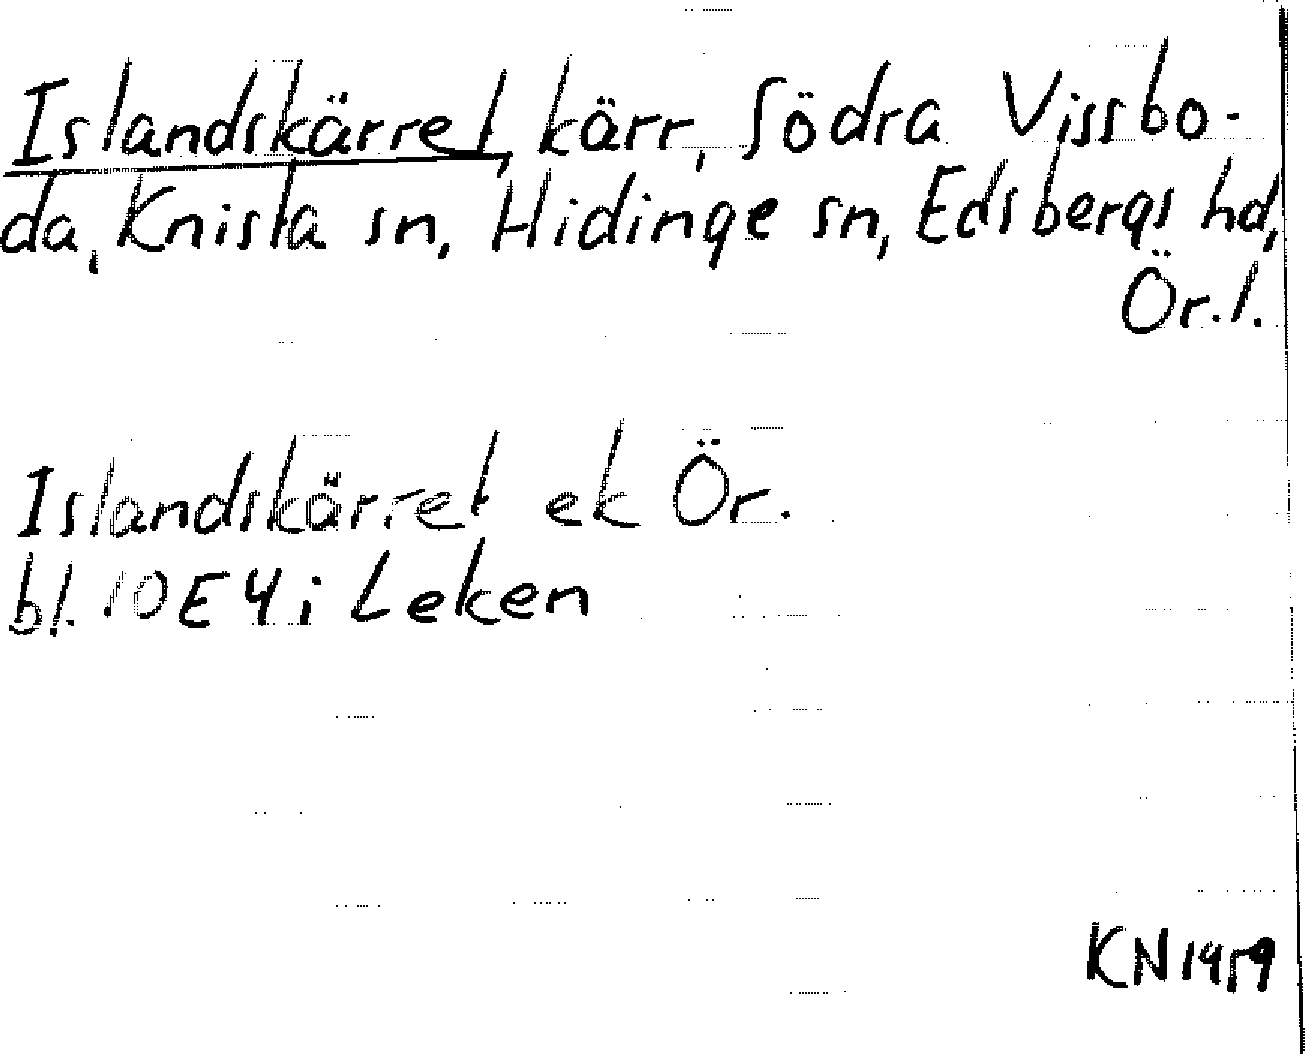 Islandskärret, kärr, Södra Vissbo-
da, Knista sn, Hidinge sn, Edsbergs hd,
Ör.l.
Islandskärret ek Ör.
bl. 10E4i Leken
KN1959